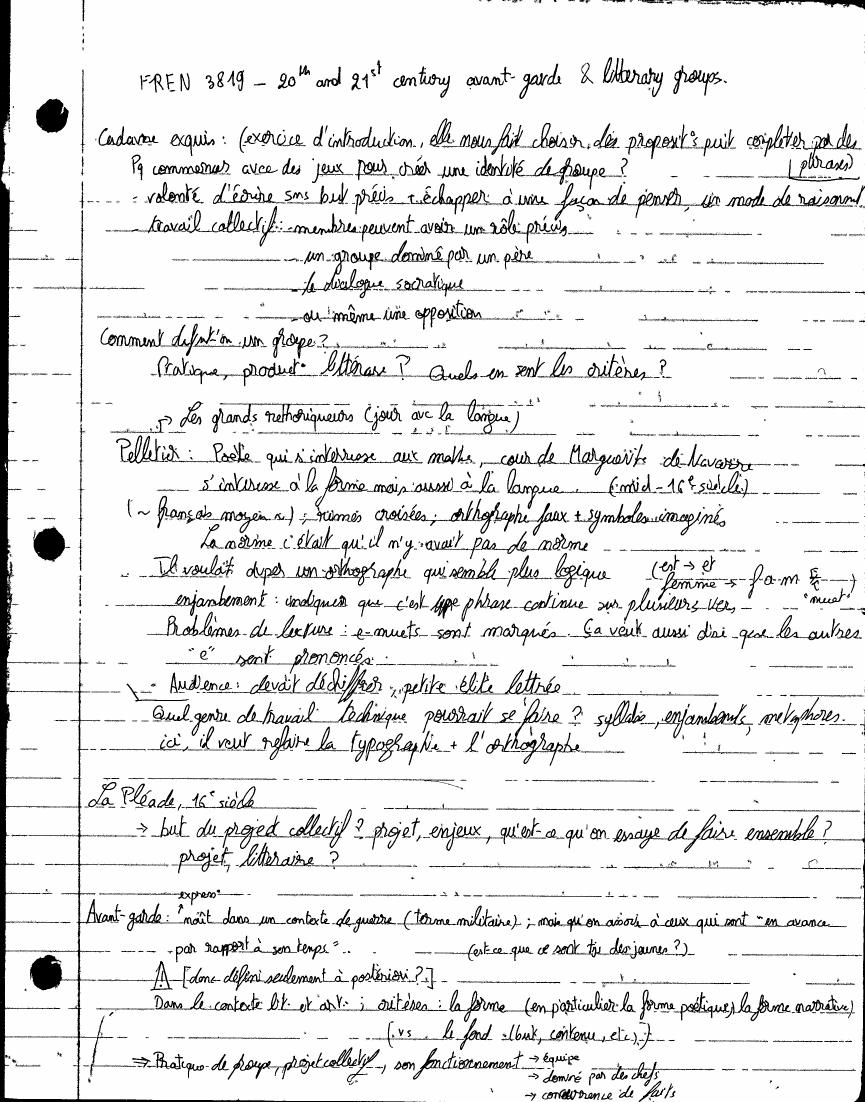 FREN 3819 – 20th and 21st century avant-garde & litterary groups.
Cadavre exquis : (exercice d'introduction, elle nous fait choisir des proposit° puit completer par des phrases)
Pq commencer avec des jeux pour créer une identité de groupe ?
- volonté d'écrire sns but précis + échapper à une façon de penser, un mode de raisonnmt
- travail collectif : - membres peuvent avoir un rôle précis
- un groupe dominé par un père
- le dialogue socratique
- ou même une opposition
Comment définit'on un groupe ?
Pratique, product° littéraire ? Quels en sont les critères ?
↱ Les grands rethoriqueurs (jour avc la langue)
Pelletier : Poète qui s'interresse aux maths, cour de Marguerite de Navarre
s'interesse à la forme mais aussi à la langue. (mid - 16e siècle)
(~ français moyen ~) ; rimes croisées ; orthographe faux + symboles imaginés
La norme c'était qu'il n'y avait pas de norme
Il voulait duper un orthographe qui semble plus logique (est → et
femme → fam E)
"muet"
enjambement : indiquer que c'est type phrase continue sur plusieurs vers
Problèmes de lecture : e-muets sont marqués. Ça veut aussi dire que les autres
"e" sont prononcés.
- Audience : devait déchiffrer, petite élite lettrée
Quel genre de travail technique pourrait se faire ? syllabes, enjambents, métaphores.
ici, il veut refaire la typographie + l'orthographe
La Pléade, 16e siècle
→ but du projed collectif ? projet, enjeux, qu'est-ce qu'on essaye de faire ensemble ?
projet, litteraire ?
express°
Avant-garde : naît dans un contexte de guerre (terme militaire) ; mais qu'on associe à ceux qui sont "en avance
par rapport à son temps". (est-ce que ce sont tjs des jeunes ?)
⚠ [donc défini seulement à postériori ?]
Dans le contexte litt. et art. ; critères : la forme (en particulier la forme poétique, la forme narrative)
[vs. le fond (but, contenu, etc.)]
⇒ Pratique de groupe, projet collectif, son fonctionnement → équipe
→ dominé par des chefs
→ concurrence de faits